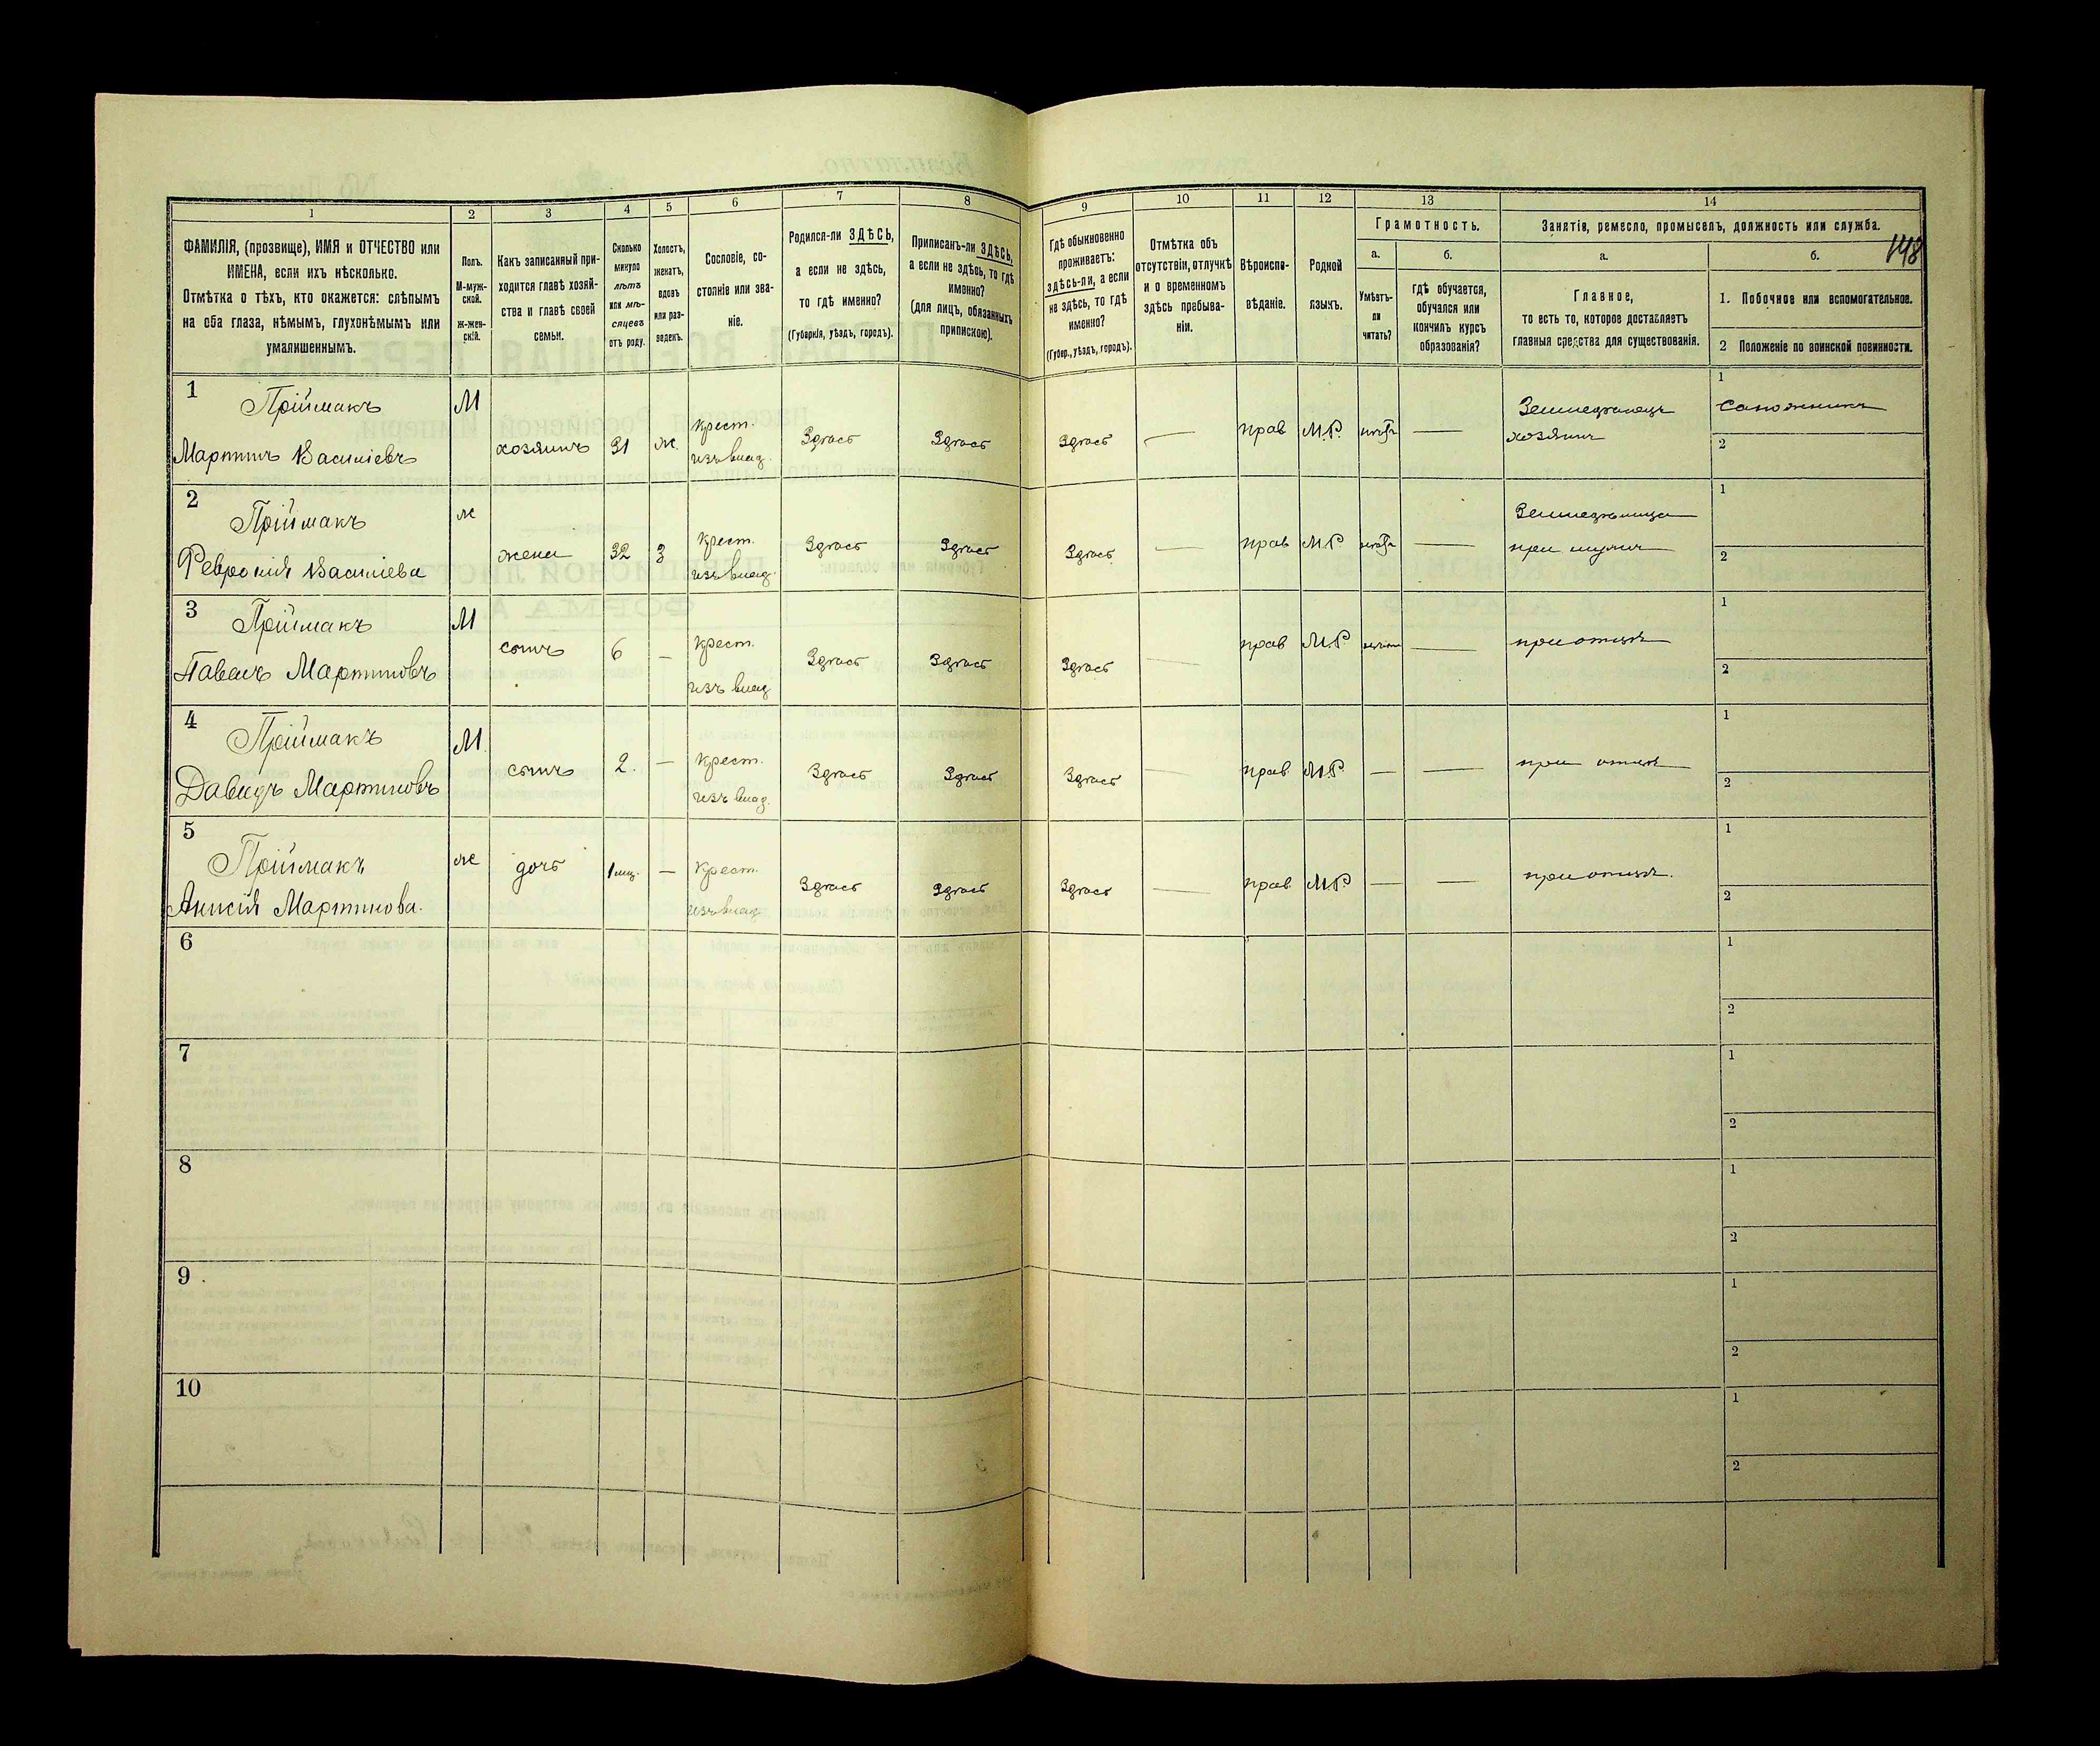 1 2 3 4 5 6 7 8 9 10 11 12 13 14
ФАМИЛІЯ, (прозвище), ИМЯ и ОТЧЕСТВО или
ИМЕНА, если ихъ нѣсколько.
Отмѣтка о тѣхъ, кто окажется: слѣпымъ
на оба глаза, нѣмымъ, глухонѣмымъ или
умалишеннымъ.
Полъ.
М-муж-
ской.
ж-жен-
скій.
Какъ записанный при-
ходится главѣ хозяй-
ства и главѣ своей
семьи.
Сколько
минуло
лѣтъ
или мѣ-
сяцевъ
отъ роду.
Холостъ,
женатъ,
вдовъ
или раз-
веденъ.
Сословіе, со-
стояніе или зва-
ніе.
Родился-ли ЗДѢСЬ,
а если не здѣсь,
то гдѣ именно?
(Губернія, уѣздъ, городъ).
Приписанъ-ли ЗДѢСЬ,
а если не здѣсь, то гдѣ
именно?
(для лицъ, обязанныхъ
припискою).
Гдѣ обыкновенно
проживаетъ:
здѣсь-ли, а если
не здѣсь, то гдѣ
именно?
(Губер., уѣздъ, городъ).
Отмѣтка объ
отсутствіи, отлучкѣ
и о временномъ
здѣсь пребыва-
ніи.
Вѣроиспо-
вѣданіе.
Родной
языкъ.
Грамотность.
а.
Умѣетъ-
ли
читать?
б.
гдѣ обучается,
обучался или
кончилъ курсъ
образованія?
Занятіе, ремесло, промыселъ, должность или служба.
148
а.
Главное,
то есть то, которое доставляетъ
главныя средства для существованія.
б.
1. Побочное или вспомогательное.
2 Положеніе по воинской повинности.
1
Пріймакъ М
Мартинъ Василіевъ хозяинъ 31 ж. крест. изъ влад. Здѣсь Здѣсь Здѣсь — прав М.Р. — Земледѣлецъ хозяинъ
1 сапожникъ
2
2
Пріймакъ ж
Февронія Василіева жена 32 З крест. изъ влад. Здѣсь Здѣсь Здѣсь — прав М.Р. — при мужѣ
1
2
3
Пріймакъ М
Павелъ Мартиновъ сынъ 6 — крест. изъ влад Здѣсь Здѣсь Здѣсь — прав М.Р. — при отцѣ
1
2
4
Пріймакъ М.
Давидъ Мартиновъ сынъ 2. — крест. изъ влад. Здѣсь Здѣсь Здѣсь — прав. М.Р. — — при отцѣ
1
2
5
Пріймакъ ж дочь 1 мц. — крест.
Анисія Мартинова. изъ влад Здѣсь Здѣсь Здѣсь — прав. М.Р. — — при отцѣ.
1
2
6
1
2
7
1
2
8
1
2
9
1
2
10
1
2